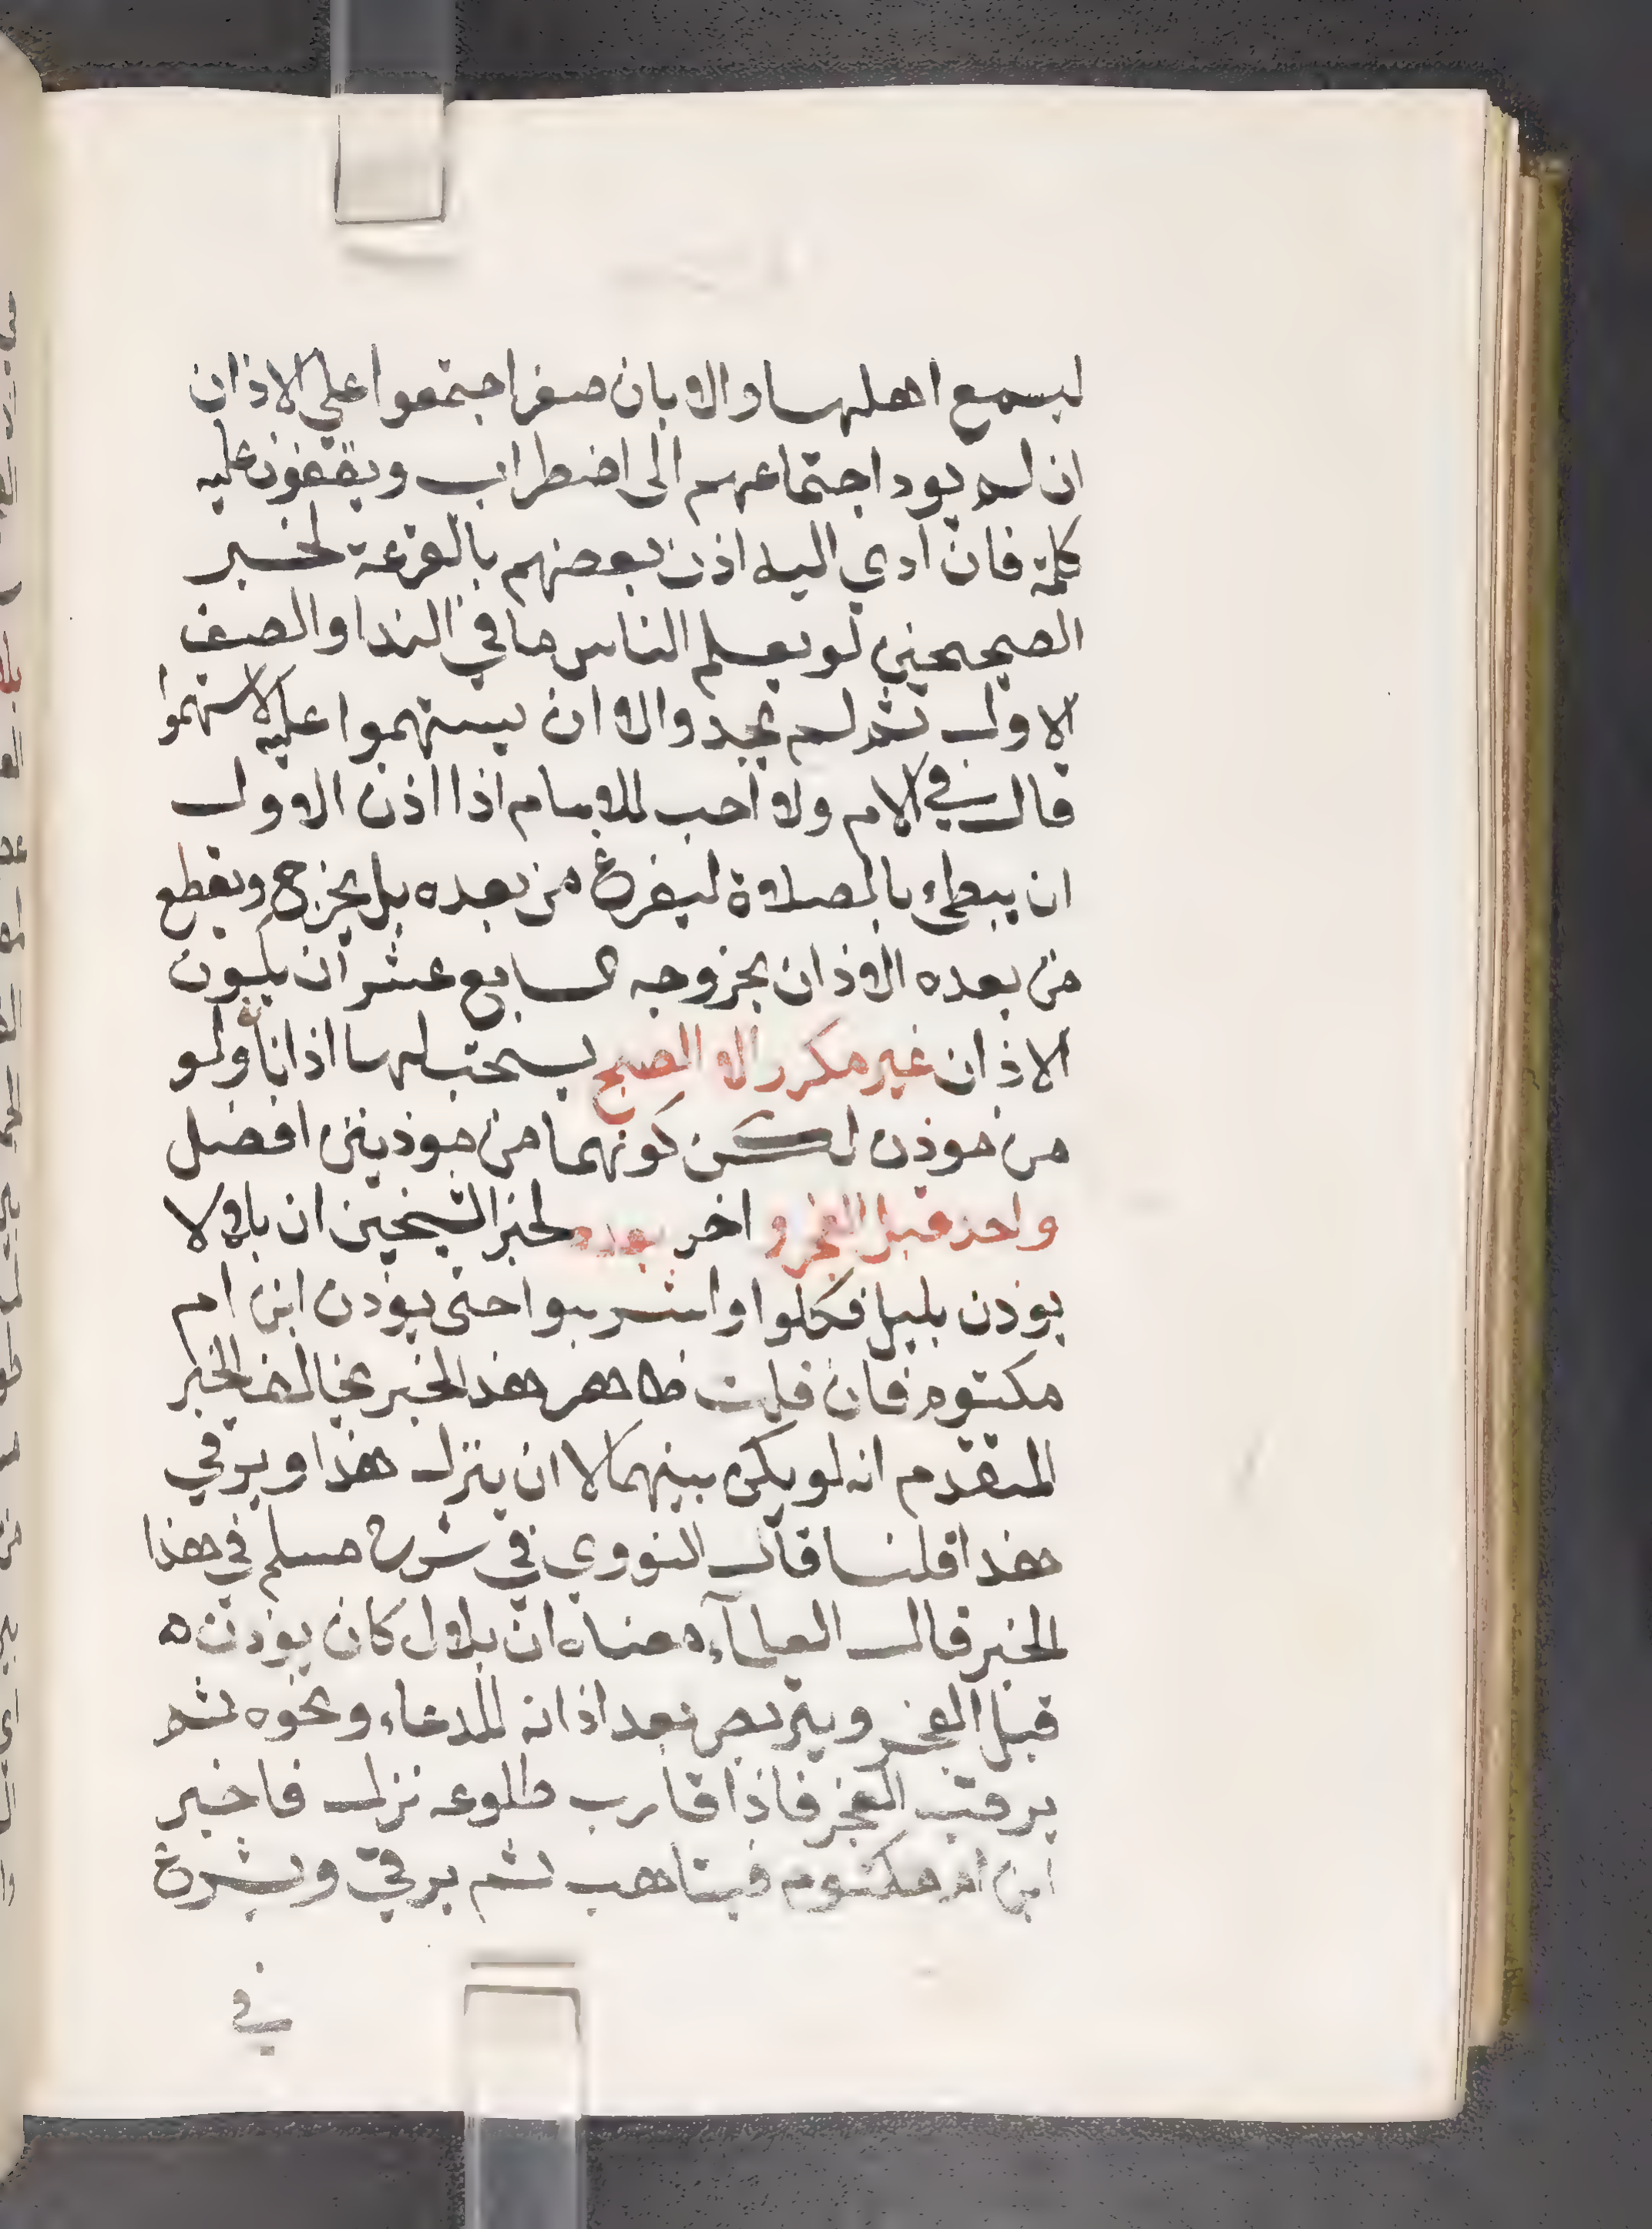 ليسمع اهلها والا بان صغرا جتمعوا علي الاذان
ان لم يود اجتماعهم الى اضطراب ويقفون عليه
كلمة فان ادي اليه اذن بعضهم بالقرعة لخبر
الصحيحين لو يعلم الناس ما في الندا والصف
الاول ثم لم يجدوا الا ان يستهموا عليه لاستهموا
قال في الام ولا احب للامام اذا اذن الاول
ان يبطىء بالصلاة ليفرغ من بعده بل يخرج ويقطع
من بعده الاذان بخروجه السابع عشر ان يكون
الاذان غير مكرر الا الصبح يستحب لها اذانان ولو
من موذن لكن كونهما من موذنين افضل
واحد قبل الفجر و اخر بعده لخبر الشيخين ان بلالا
يوذن بليل فكلوا واشربوا حتى يوذن ابن ام
مكتوم فان قلت ظاهر هذا الخبر يخالف الخبر
المتقدم انه لو يكن بينهما لا ان ينزل هذا ويرقي
هذا قلنا قال النووي في شرح مسلم في هذا
الخبر قال العلمآء معناه ان بلال كان يوذن ه
قبل الفجر ويتربص بعد اذانه للدعاء ونحوه ثم
يرقب الفجر فاذا قارب طلوعه نزل فاخبر
ابن ام مكتوم فيتاهب ثم يرقي ويشرع
في